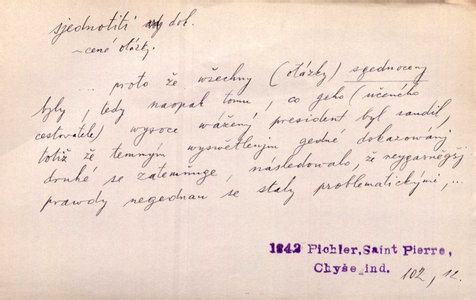 sjednotiti dok.
~cené otázky.
... proto že wšechny (otázky) sgednoceny
byly, tedy naopak tomu, co geho (učeného
cestovatele) wysoce wážený president byl saudil,
totiž že temným wyswětlenjm gedné dokazowánj
druhé se zatemnuge, následowalo, že neygarněgšj
prawdy negednau se staly problematickými, ...
1842 Pichler, Saint Pierre,
Chyše ind. 102, 12.